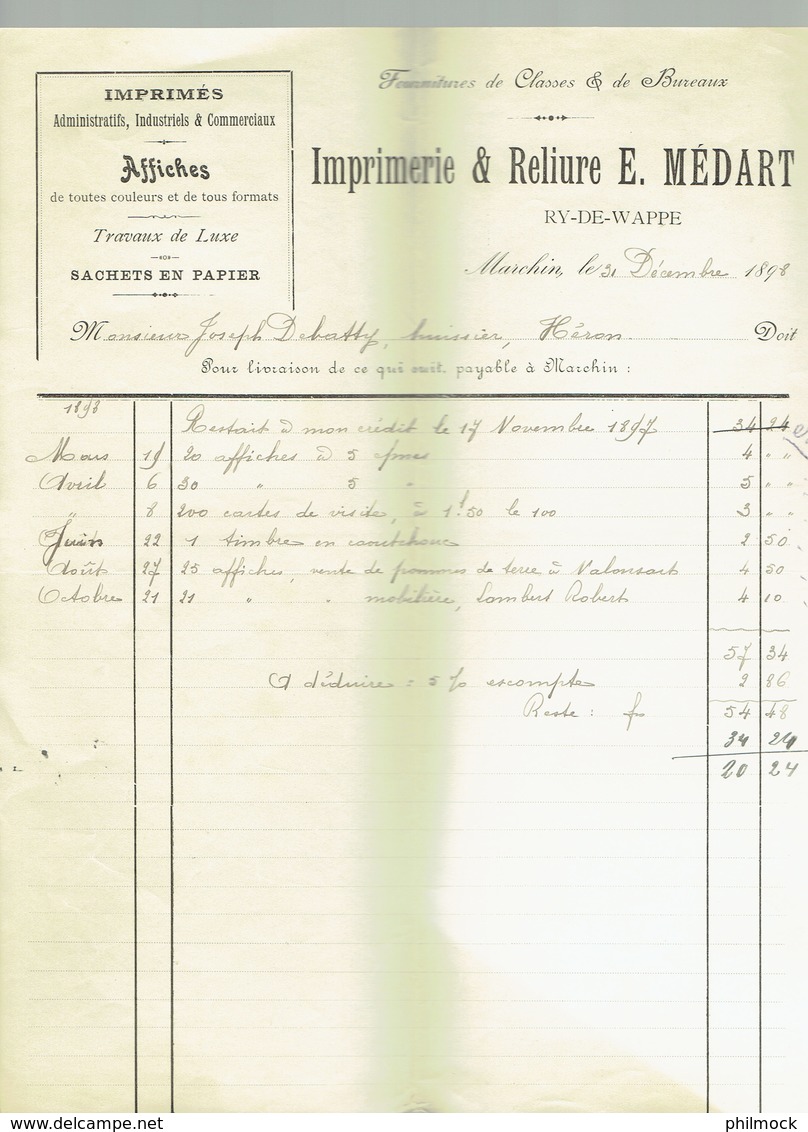 IMPRIMÉS
Administratifs, Industriels & Commerciaux
Affiches
de toutes couleurs et de tous formats
Travaux de Luxe
SACHETS EN PAPIER
Fournitures de Classes & de Bureaux
Imprimerie & Reliure E. MÉDART
RY-DE-WAPPE
Marchin, le 31 Décembre 1898
Monsieur Joseph Debatty, huissier, Héron Doit
Pour livraison de ce qui suit, payable à Marchin :
1898
Restait à mon crédit le 17 Novembre 1897 34 24
Mars 19 20 affiches à 5 4 " "
Avril 6 30 " 5 " 5 " "
" 8 200 cartes de visite, à 1f.50 le 100 3 " "
Juin 22 1 timbre en caoutchouc 2 50
Août 27 25 affiches, vente de pommes de terre à 4 50
Octobre 21 21 " " mobilière, Lambert Robert 4 10
57 34
A déduire : 5 % escompte 2 86
Reste : f 54 48
34 24
20 24
delcampe.net
philmock